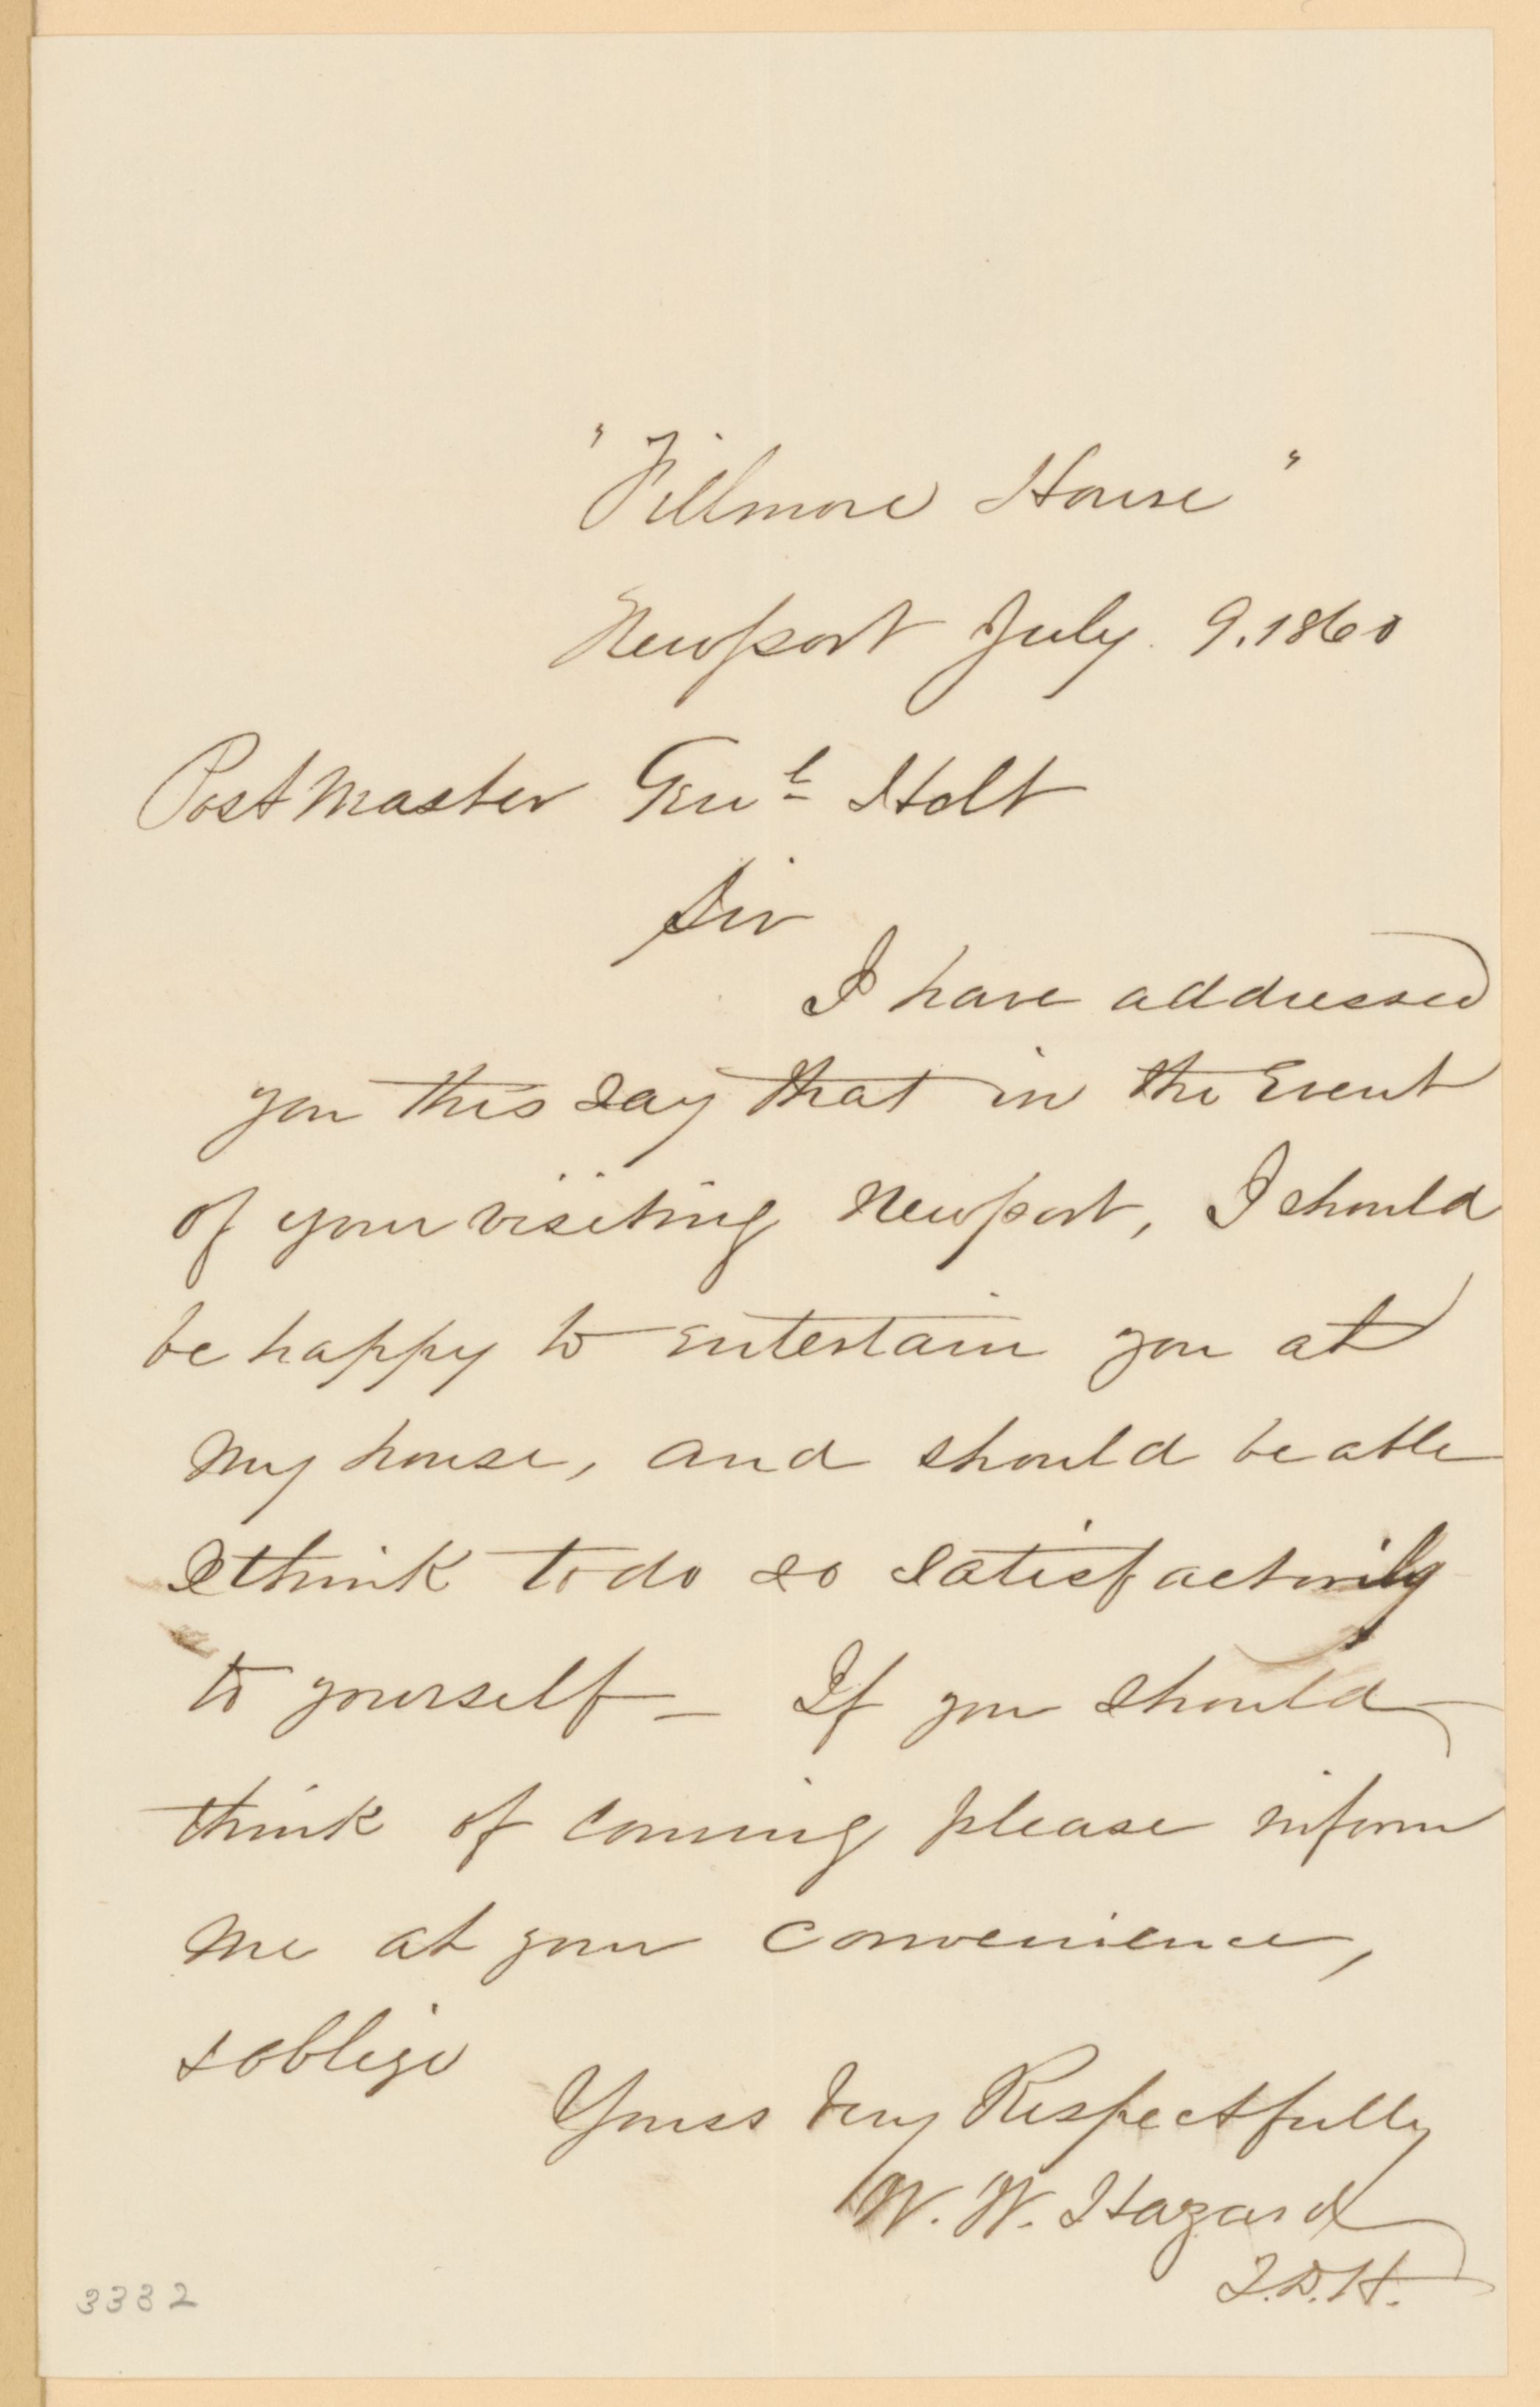 "Fillmore House"
Newport July 9. 1860
Post Master Genl Holt
Sir
I have addressed
you this say that in the Event
of your visiting Newport, I should
be happy to entertain you at
my house, and should be able
I think to do so satisfactorily
to yourself — If you should
think of coming please inform
me at your convenience,
& oblige
Yours Very Respectfully
W. W. Hazard
3332